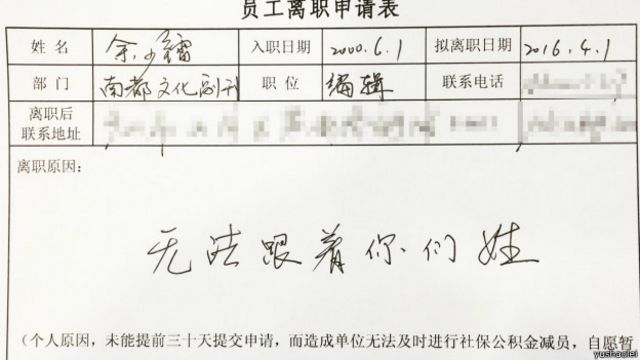 员工离职申请表
姓 名 余少镭 入职日期 2000.6.1 拟离职日期 2016.4.1
部 门 南都文化副刊 职 位 编辑 联系电话
离职后
联系地址
离职原因:
无法跟着你们姓
(个人原因，未能提前三十天提交申请，而造成单位无法及时进行社保公积金减员，自愿暂
yushaolei